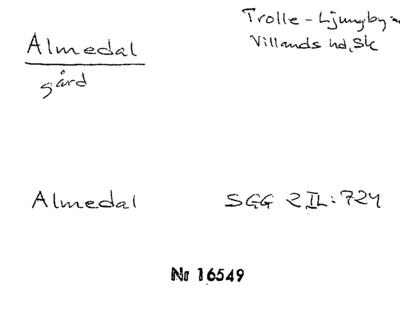 Almedal
gård
Trolle-Ljungby
Villands hd, Sk
Almedal
SGG 2 II: 724
Nr 16549